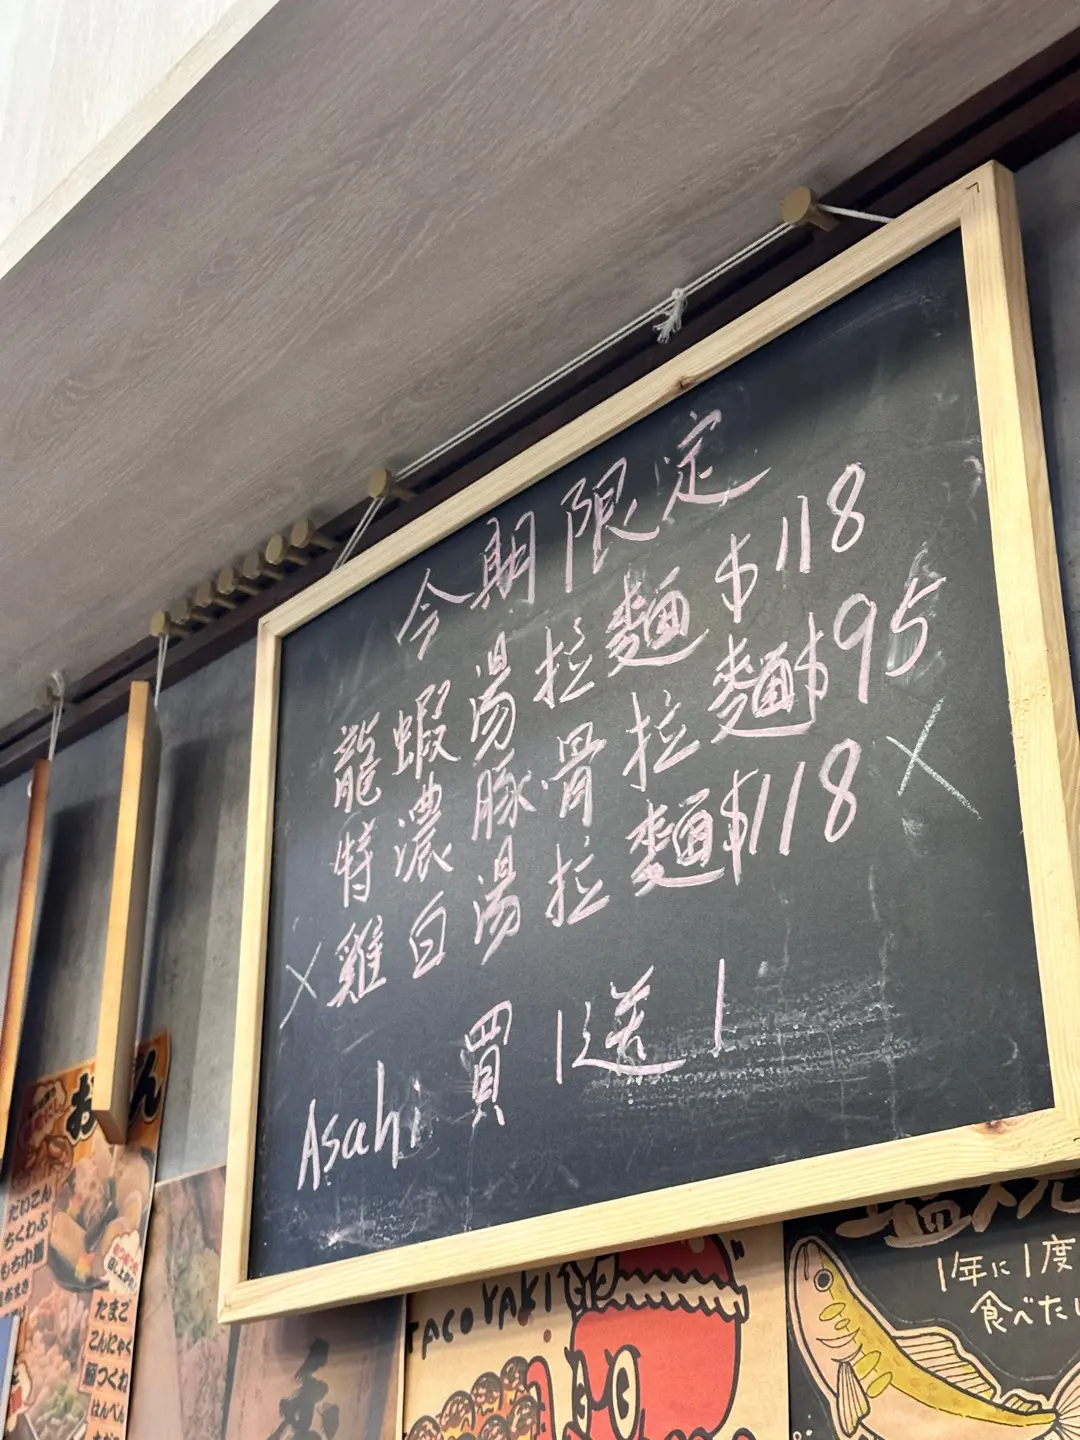 今期限定
龍蝦湯拉麵 $118
特濃豚骨拉麵 $95
X 雞白湯拉麵 $118 X
Asahi 買1送1
おでん
だいこん
ちくわぶ
もち巾着
たまご
こんにゃく
鶏つくね
はんぺん
TACOYAKI
塩焼
1年に1度
食べたい